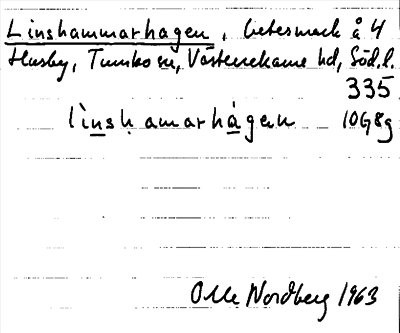 Linshammarhagen, betesmark å 4
Husby, Tumbo sn, Västerrekarne hd, Söd. l.
335
lìnsḥamarhàgen 10G8g
Olle Nordberg 1963